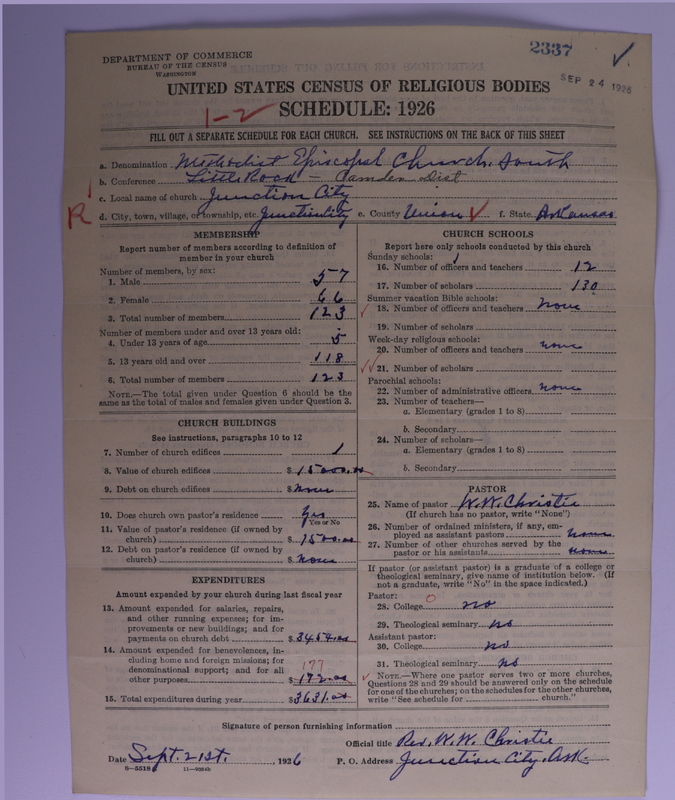 2337
SEP 24 1926
DEPARTMENT OF COMMERCE
BUREAU OF THE CENSUS
WASHINGTON
UNITED STATES CENSUS OF RELIGIOUS BODIES
1-2
SCHEDULE: 1926
FILL OUT A SEPARATE SCHEDULE FOR EACH CHURCH. SEE INSTRUCTIONS ON THE BACK OF THIS SHEET
a. Denomination Methodist Episcopal Church, South
b. Conference Little Rock - Camden Dist
c. Local name of church Junction City
R d. City, town, village, or township, etc. Junction City e. County Union f. State Arkansas
MEMBERSHIP
Report number of members according to definition of
member in your church
Number of members, by sex:
1. Male 57
2. Female 66
3. Total number of members 123
Number of members under and over 13 years old:
4. Under 13 years of age 5
5. 13 years old and over 118
6. Total number of members 123
NOTE.—The total given under Question 6 should be the
same as the total of males and females given under Question 3.
CHURCH BUILDINGS
See instructions, paragraphs 10 to 12
7. Number of church edifices 1
8. Value of church edifices $15000.00
9. Debt on church edifices $None
10. Does church own pastor's residence Yes
Yes or No
11. Value of pastor's residence (if owned by
church) $1500.00
12. Debt on pastor's residence (if owned by
church) $None
EXPENDITURES
Amount expended by your church during last fiscal year
13. Amount expended for salaries, repairs,
and other running expenses; for im-
provements or new buildings; and for
payments on church debt $3454.00
14. Amount expended for benevolences, in-
cluding home and foreign missions; for
denominational support; and for all 177
other purposes $172.00
15. Total expenditures during year $3631.00
CHURCH SCHOOLS
Report here only schools conducted by this church
Sunday schools: 1
16. Number of officers and teachers 12
17. Number of scholars 130
Summer vacation Bible schools:
18. Number of officers and teachers None
19. Number of scholars
Week-day religious schools:
20. Number of officers and teachers None
21. Number of scholars
Parochial schools:
22. Number of administrative officers None
23. Number of teachers—
a. Elementary (grades 1 to 8)
b. Secondary
24. Number of scholars—
a. Elementary (grades 1 to 8)
b. Secondary
PASTOR
25. Name of pastor W. W. Christie
(If church has no pastor, write "None")
26. Number of ordained ministers, if any, em-
ployed as assistant pastors None
27. Number of other churches served by the
pastor or his assistants None
If pastor (or assistant pastor) is a graduate of a college or
theological seminary, give name of institution below. (If
not a graduate, write "No" in the space indicated.)
Pastor:
28. College 0 no
29. Theological seminary No
Assistant pastor:
30. College No
31. Theological seminary No
NOTE.—Where one pastor serves two or more churches,
Questions 28 and 29 should be answered only on the schedule
for one of the churches; on the schedules for the other churches,
write "See schedule for church."
Signature of person furnishing information
Official title Rev. W. W. Christie
Date Sept. 21st. , 1926 P. O. Address Junction City, Ark.
8-5518 11-9086b